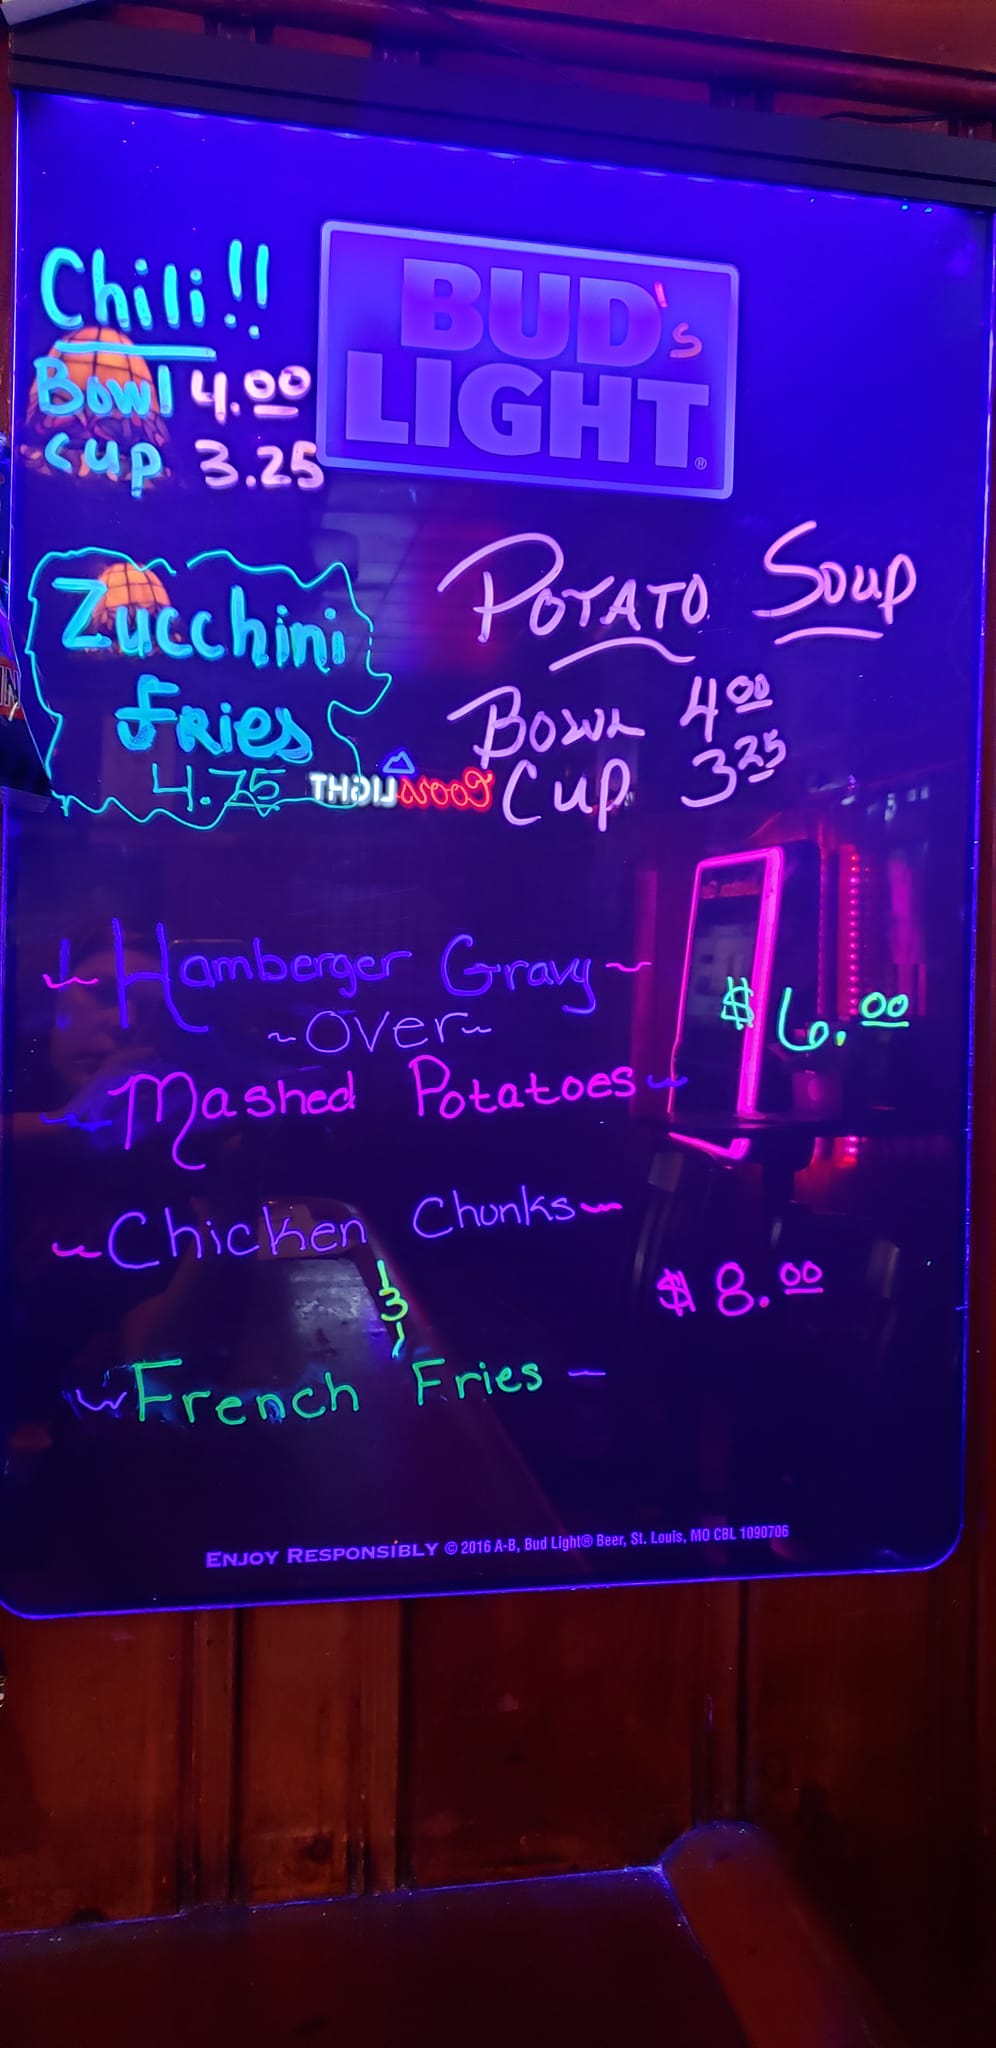 Chili!!
Bowl 4.00
Cup 3.25
BUD's
LIGHT®
Zucchini
Fries
4.75
Potato Soup
Bowl 4.00
Cup 3.25
Coors LIGHT
Hamberger Gravy
~Over~
Mashed Potatoes
$6.00
Chicken Chunks
&
French Fries
$8.00
ENJOY RESPONSIBLY © 2016 A-B, Bud Light® Beer, St. Louis, MO CBL 1090706